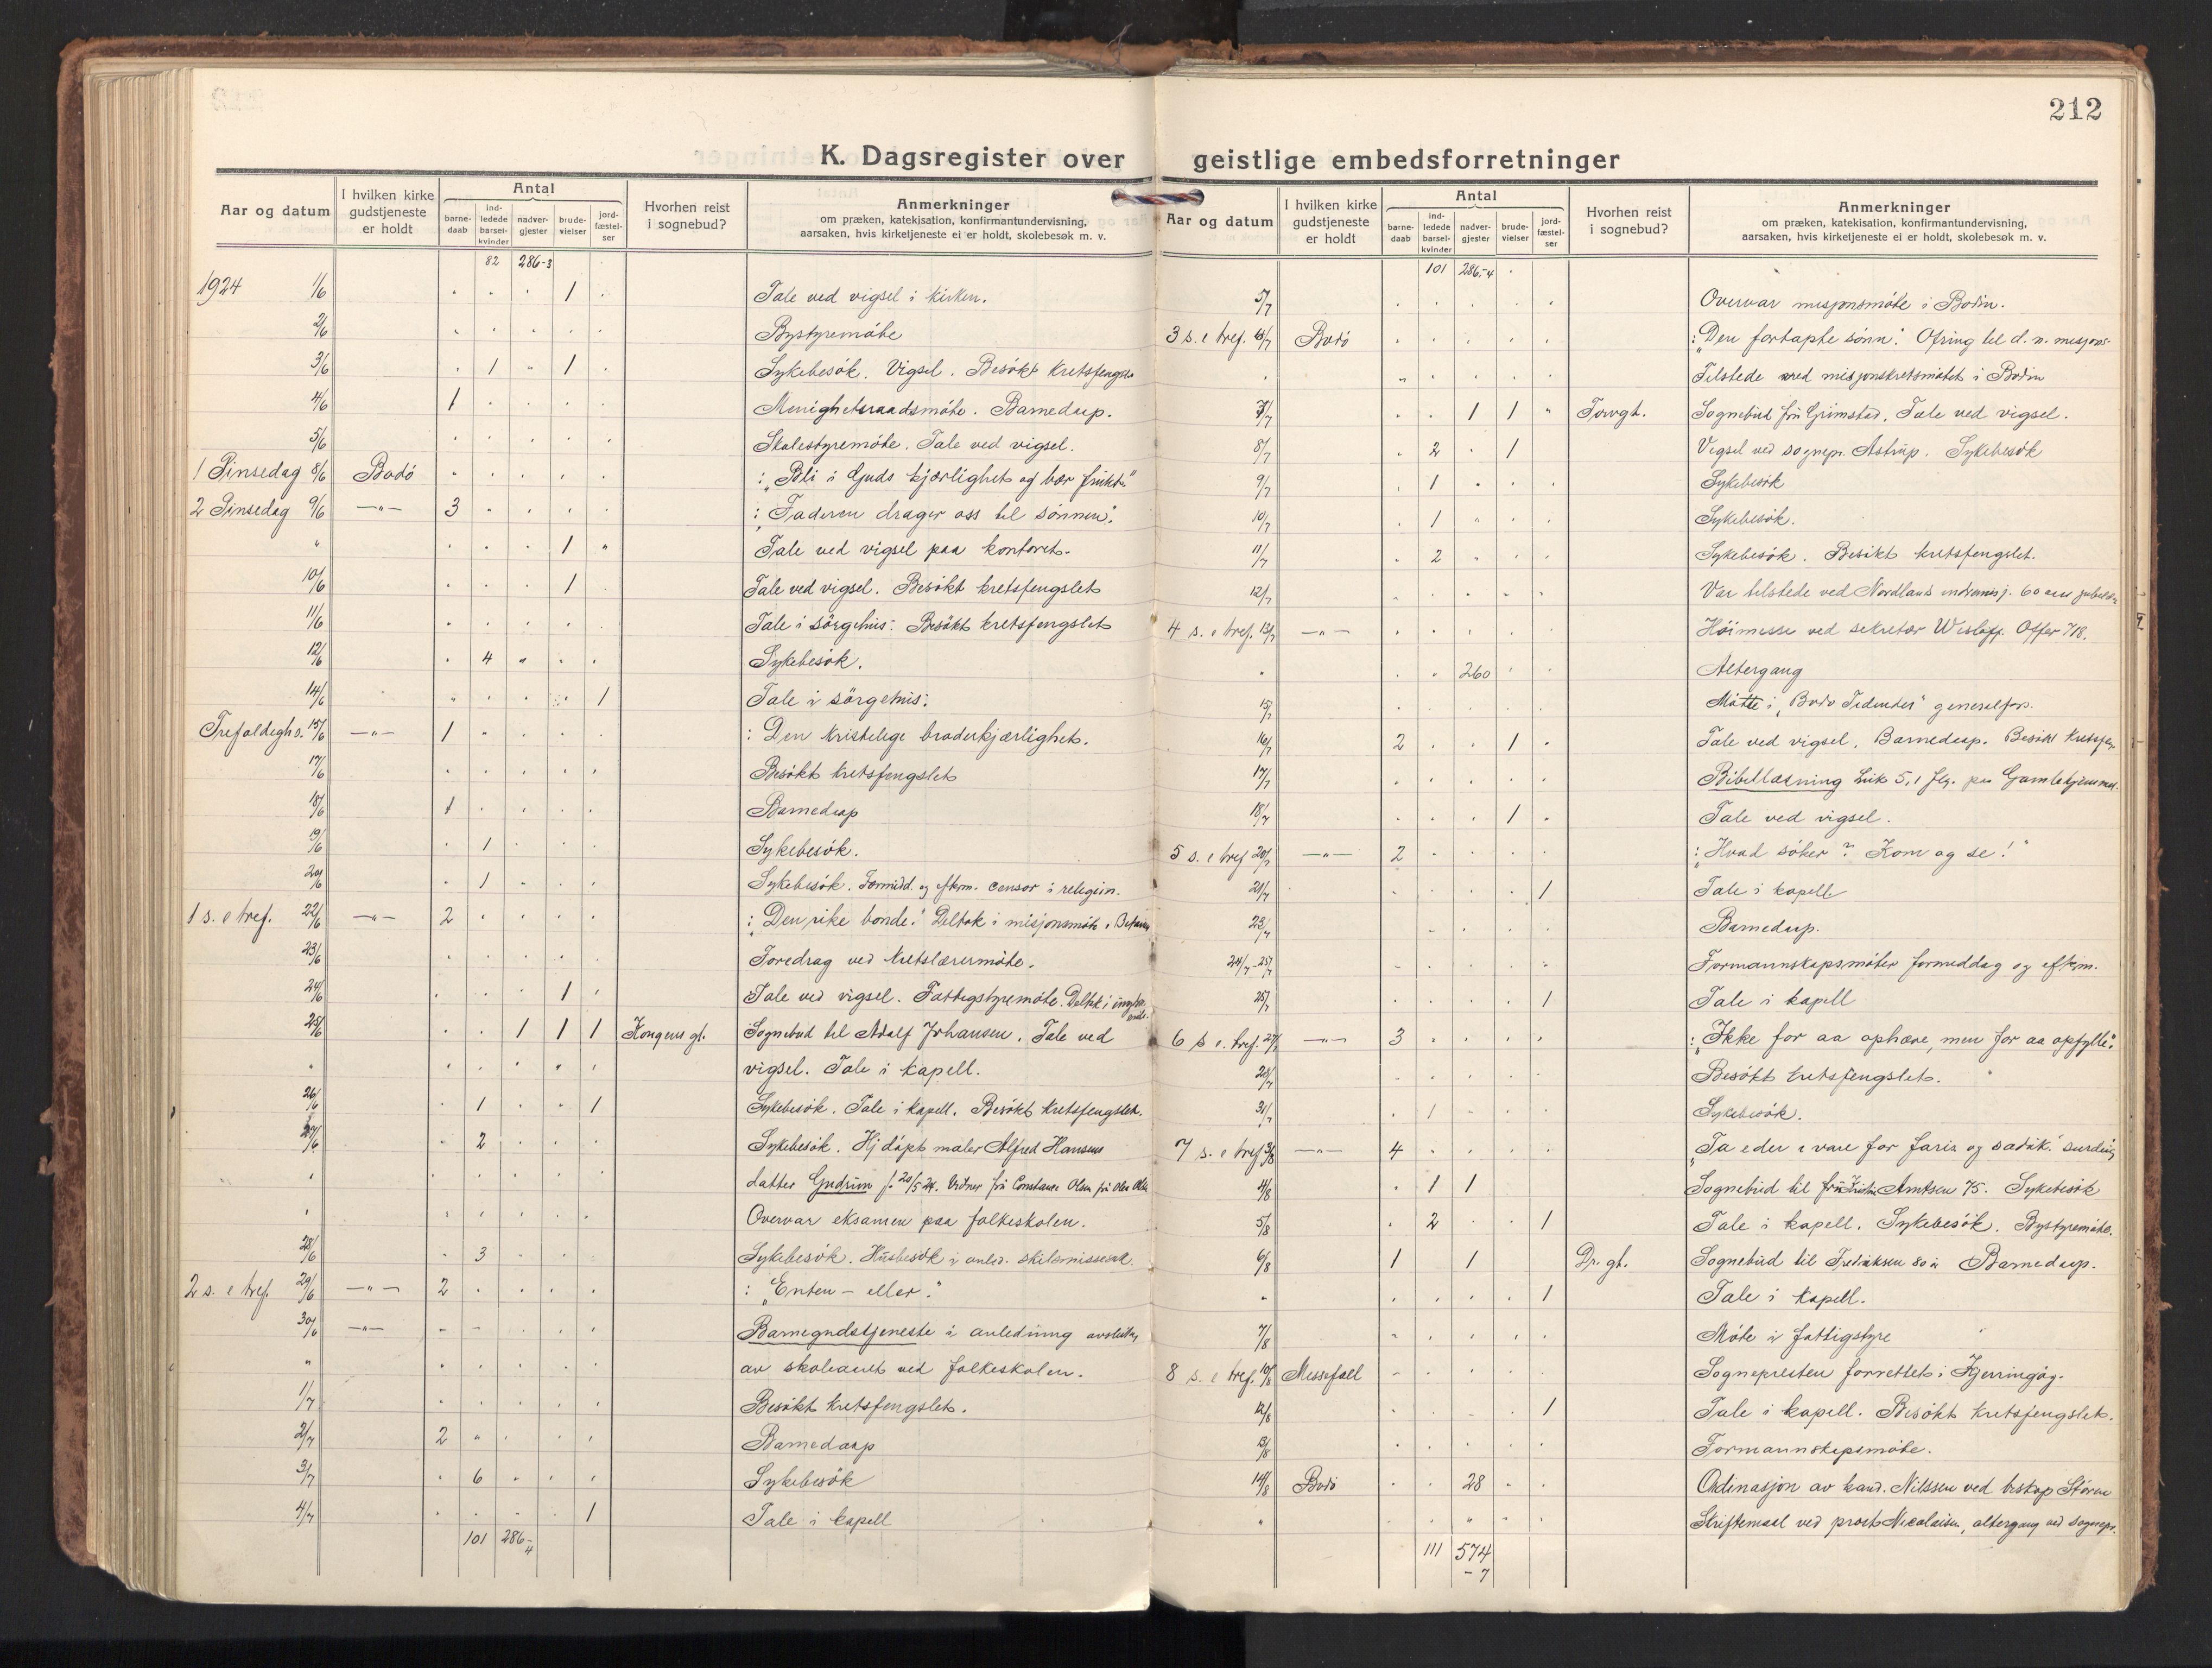 212
K. Dagsregister over geistlige embedsforretninger
Aar og datum | I hvilken kirke gudstjeneste er holdt | Antal | barne-daab | ind-ledede barsel-kvinder | nadver-gjester | brude-vielser | jord-fæstel-ser | Hvorhen reist i sognebud? | Anmerkninger om præken, katekisation, konfirmantundervisning, aarsaken, hvis kirketjeneste ei er holdt, skolebesøk m. v.
82 286-3
1924 1/6 1 Tale ved vigsel i kirken.
2/6 Bystyremöte
3/6 1 1 Sykebesök. Vigsel. Besökt kretsfengslet
4/6 1 Menighetsraadsmöte. Barnedaap.
5/6 Skolestyremöte. Tale ved vigsel.
1 Pinsedag 8/6 Bodö : „Bli i Guds kjærlighet og bær frukt"
2 Pinsedag 9/6 -"- 3 : „Faderen drager oss til sönnen".
" 1 " Tale ved vigsel paa kontoret.
10/6 1 Tale ved vigsel. Besökt kretsfengslet
11/6 Tale i sörgehus. Besökt kretsfengslet
12/6 4 Sykebesök.
14/6 1 Tale i sörgehus.
Trefoldigh.s. 15/6 -"- 1 : Den kristelige broderkjærlighet.
17/6 Besökt kretsfengslet
18/6 1 Barnedaap
19/6 1 Sykebesök.
20/6 1 Sykebesök. Formidd. og efterm. censor i religion.
1 s. e tref. 22/6 -"- 2 : „Den rike bonde." Deltok i misjonsmöte i
23/6 Foredrag ved kretslærermöte.
24/6 1 Tale ved vigsel. Fattigstyremöte. Deltok i
25/6 1 1 1 Kongens gt. Sognebud til Adolf Johansen. Tale ved
" vigsel. Tale i kapell.
26/6 1 1 Sykebesök. Tale i kapell. Besökt kretsfengslet.
27/6 2 Sykebesök. Hj döpt maler Alfred Hansens
" datter Gudrun f. 20/5 24. Vidner fru Constanse Olsen fru
" Overvar eksamen paa folkeskolen.
28/6 3 Sykebesök. Husbesök i anled. skilsmissesak.
2 s. e tref. 29/6 -"- 2 : „Enten - eller."
30/6 -"- Barnegudstjeneste i anledning avslutn.
" av skoleaaret ved folkeskolen.
1/7 Besökt kretsfengslet.
2/7 2 Barnedaap
3/7 6 Sykebesök
4/7 1 Tale i kapell
101 286-4
Aar og datum | I hvilken kirke gudstjeneste er holdt | Antal | barne-daab | ind-ledede barsel-kvinder | nadver-gjester | brude-vielser | jord-fæstel-ser | Hvorhen reist i sognebud? | Anmerkninger om præken, katekisation, konfirmantundervisning, aarsaken, hvis kirketjeneste ei er holdt, skolebesøk m. v.
101 286-4
5/7 Overvar misjonsmöte i Bodin.
3 s. e tref. 6/7 Bodö : „Den fortapte sönn". Ofring til d. n. misjons-
Tilstede ved misjonskretsmötet i Bodin
7/7 1 1 Torvgt. Sognebud fru Grimstad. Tale ved vigsel.
8/7 2 1 Vigsel ved sognepr. Astrup. Sykebesök
9/7 1 Sykebesök
10/7 1 Sykebesök.
11/7 2 Sykebesök. Besökt kretsfengslet.
12/7 Var tilstede ved Nordlands indremisj. 60 aars
4 s. e tref. 13/7 -"- Höimesse ved sekretær Wisløff. Offer 718.
" 260 Altergang
15/7 Mötte i „Bodö Tidendes" generalfors.
16/7 2 1 Tale ved vigsel. Barnedaap. Besökt kretsfen.
17/7 Bibellæsning Luk 5,1 flg. paa Gamlehjemmet.
18/7 1 Tale ved vigsel.
5 s. e tref 20/7 -"- 2 : „Hvad söker ? Kom og se!"
21/7 1 Tale i kapell
23/7 Barnedaap.
24/7-25/7 Formannskapsmöter formeddag og efterm.
25/7 1 Tale i kapell
6 s e. tref. 27/7 -"- 3 : „Ikke for aa ophæve, men for aa opfylle".
28/7 Besökt kretsfengslet.
31/7 1 Sykebesök.
7 s. e tref 3/8 -"- 4 „Ta eder i vare for faris. og saduk. surdeig"
4/8 1 1 Sognebud til fru Arntsen 75. Sykebesök
5/8 2 1 Tale i kapell. Sykebesök. Bystyremöte.
6/8 1 1 Dr. gt. Sognebud til Fredriksen 80 år Barnedaap.
" 1 Tale i kapell.
7/8 Möte i fattigstyre
8 s. e tref. 10/8 Messefall Sognepresten forrettet i Kjerringöy.
12/8 1 Tale i kapell. Besökt kretsfengslet.
13/8 Formannskapsmöte.
14/8 Bodö 28 Ordinasjon av kand. Nilssen ved biskop Stören
" " Skriftemaal ved prost Nicolaisen, altergang ved sognepr.
111 574-7